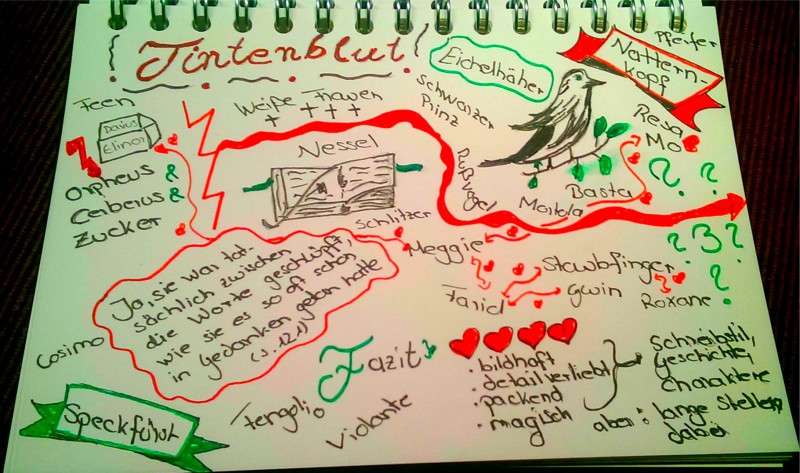 ! Tintenblut !
Eichelhäher
Natternkopf
Pfeifer
Feen
Darius
Elinor
Weiße Frauen
Schwarzer
Prinz
Resa
Mo
Nessel
Rußvogel
Orpheus &
Cerberus &
Zucker
Basta
Mortola
? ?
Schlitzer
Meggie
? 3 ?
Staubfinger
?
Ja, sie war tat-
sächlich zwischen
die Worte geschlüpft,
wie sie es so oft schon
in Gedanken getan hatte
(S. 121)
Farid
Gwin
Roxane
Cosimo
Fazit
· bildhaft
· detailverliebt
· packend
· magisch
Schreibstil,
Geschichte,
Charaktere
aber: lange Stellen
dabei
Speckfürst
Fenoglio
Violante